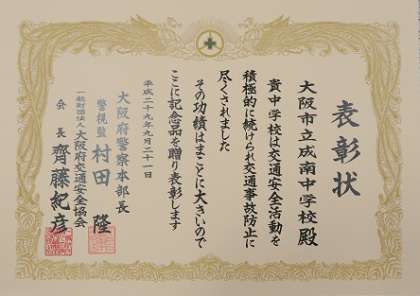 表彰状
大阪市立成南中学校殿
貴中学校は交通安全活動を
積極的に続けられ交通事故防止に
尽くされました
その功績はまことに大きいので
ここに記念品を贈り表彰します
平成二十九年九月二十一日
大阪府警察本部長
警視監 村田 隆
一般財団法人大阪府交通安全協会
会長 齊藤紀彦